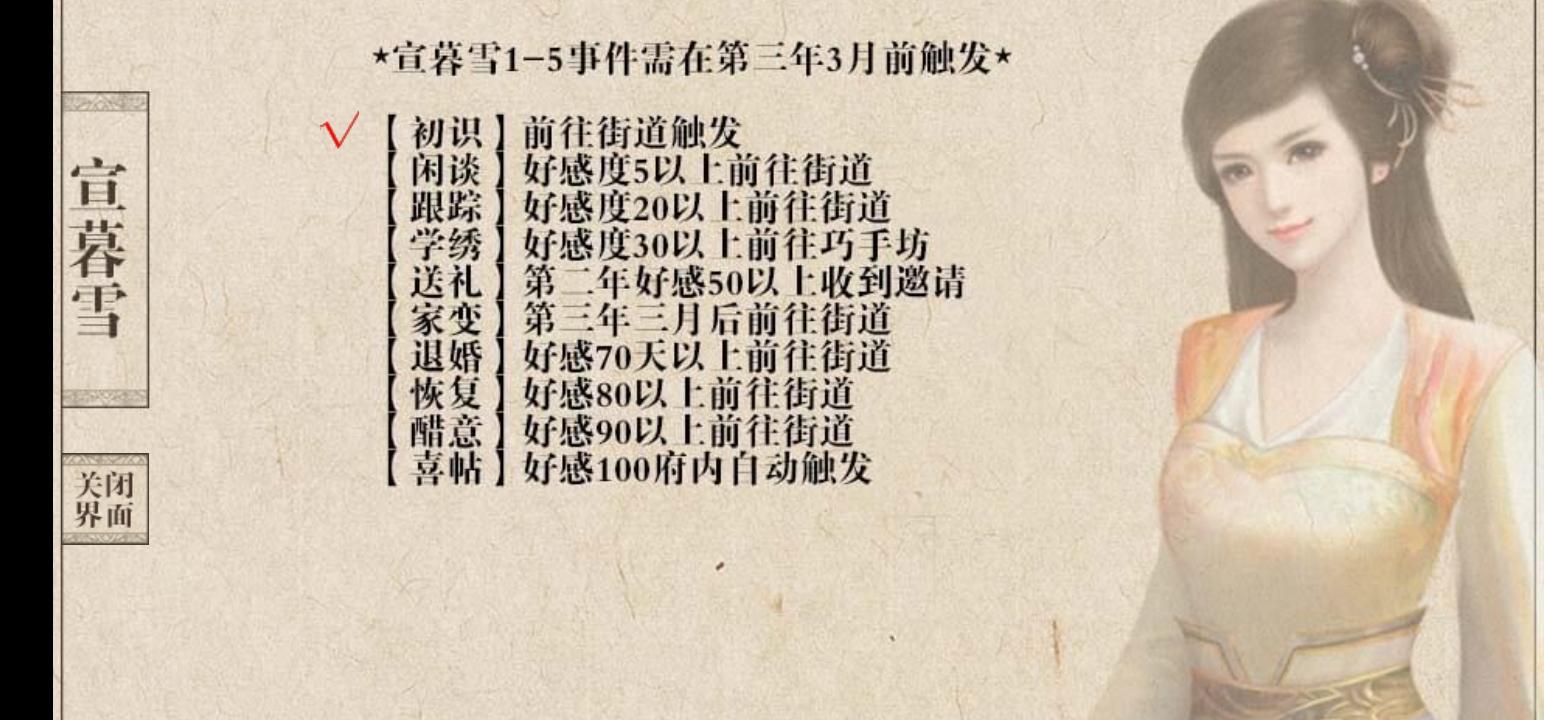 ★宣暮雪1-5事件需在第三年3月前触发★
√【初识】前往街道触发
【闲谈】好感度5以上前往街道
【跟踪】好感度20以上前往街道
【学绣】好感度30以上前往巧手坊
【送礼】第二年好感50以上收到邀请
【家变】第三年三月后前往街道
【退婚】好感70天以上前往街道
【恢复】好感80以上前往街道
【醋意】好感90以上前往街道
【喜帖】好感100府内自动触发
宣暮雪
关闭
界面